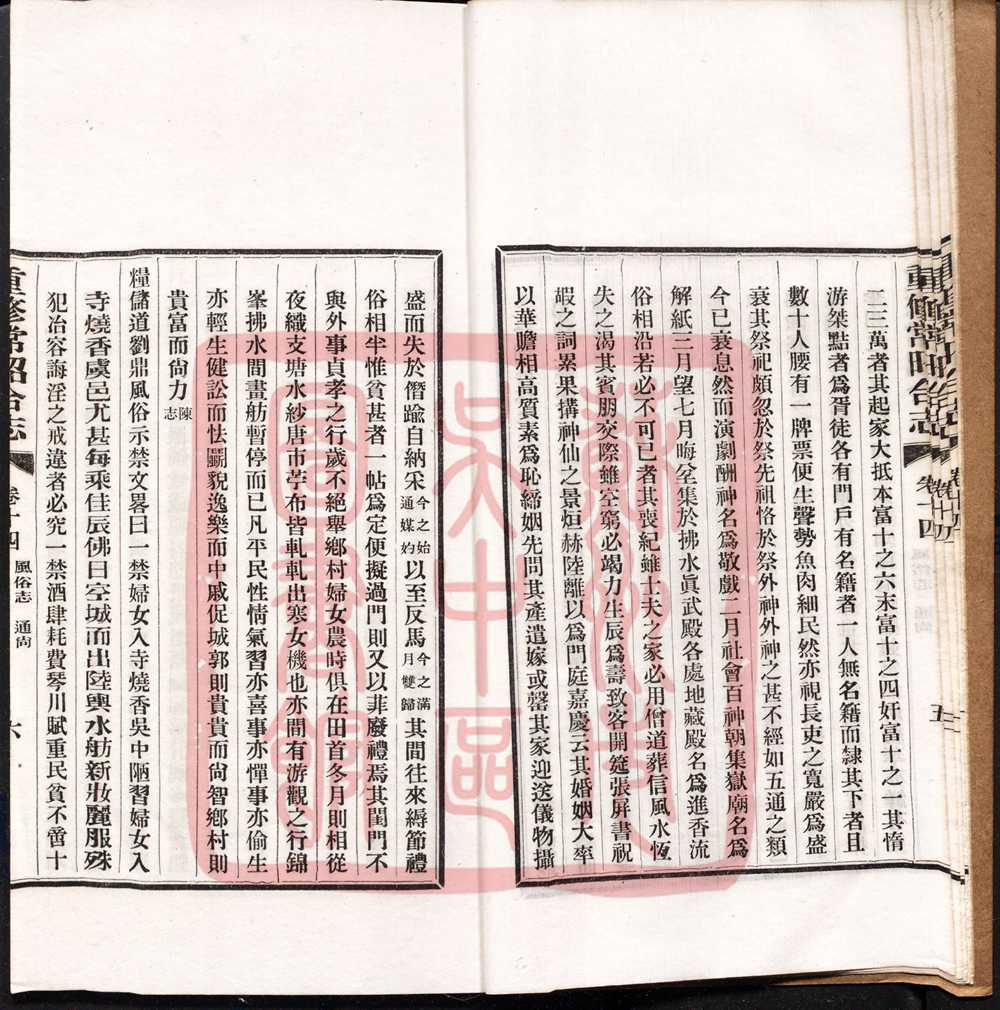 二三萬者其起家大抵本富十之六末富十之四奸富十之一其惰
游桀點者爲胥徒各有門戶有名籍者一人無名籍而隸其下者且
數十人腰有一牌票便生聲勢魚肉細民然亦視長吏之寬嚴爲盛
衰其祭祀頗忽於祭先祖恪於祭外神外神之甚不經如五通之類
今已衰息然而演劇酬神名爲敬戲二月社會百神朝集獄廟名爲
解紙三月望七月晦全集於拂水眞武殿各處地藏殿名爲進香流
俗相沿若必不可已者其喪紀雖士夫之家必用僧道葬信風水恆
失之渴其賓朋交際雖空窮必竭力生辰爲壽致客開筵張屏書祝
嘏之詞累果搆神仙之景烜赫陸離以爲門庭嘉慶云其婚姻大率
以華贍相高質素爲恥締姻先問其產遣嫁或罄其家迎送儀物攝
重修常昭合志
卷十四
五
盛而失於僭踰自納采今之始通媒妁以至反馬今之滿月雙歸其間往來縟節禮
俗相半惟貧甚者一帖爲定便擬過門則又以非廢禮焉其閨門不
與外事貞孝之行歲不絕舉鄉村婦女農時俱在田首冬月則相從
夜織支塘水紗唐市苧布皆軋軋出寒女機也亦間有游觀之行錦
峯拂水間畫舫暫停而已凡平民性情氣習亦喜事亦憚事亦偷生
亦輕生健訟而怯鬭貌逸樂而中戚促城郭則貴貴而尙智鄉村則
貴富而尙力陳志
糧儲道劉鼎風俗示禁文畧曰一禁婦女入寺燒香吳中陋習婦女入
寺燒香虞邑尤甚每乘佳辰佛日空城而出陸輿水舫新妝麗服殊
犯冶容誨淫之戒違者必究一禁酒肆耗費琴川賦重民貧不啻十
重修常昭合志
卷十四
風俗志 通尙
六